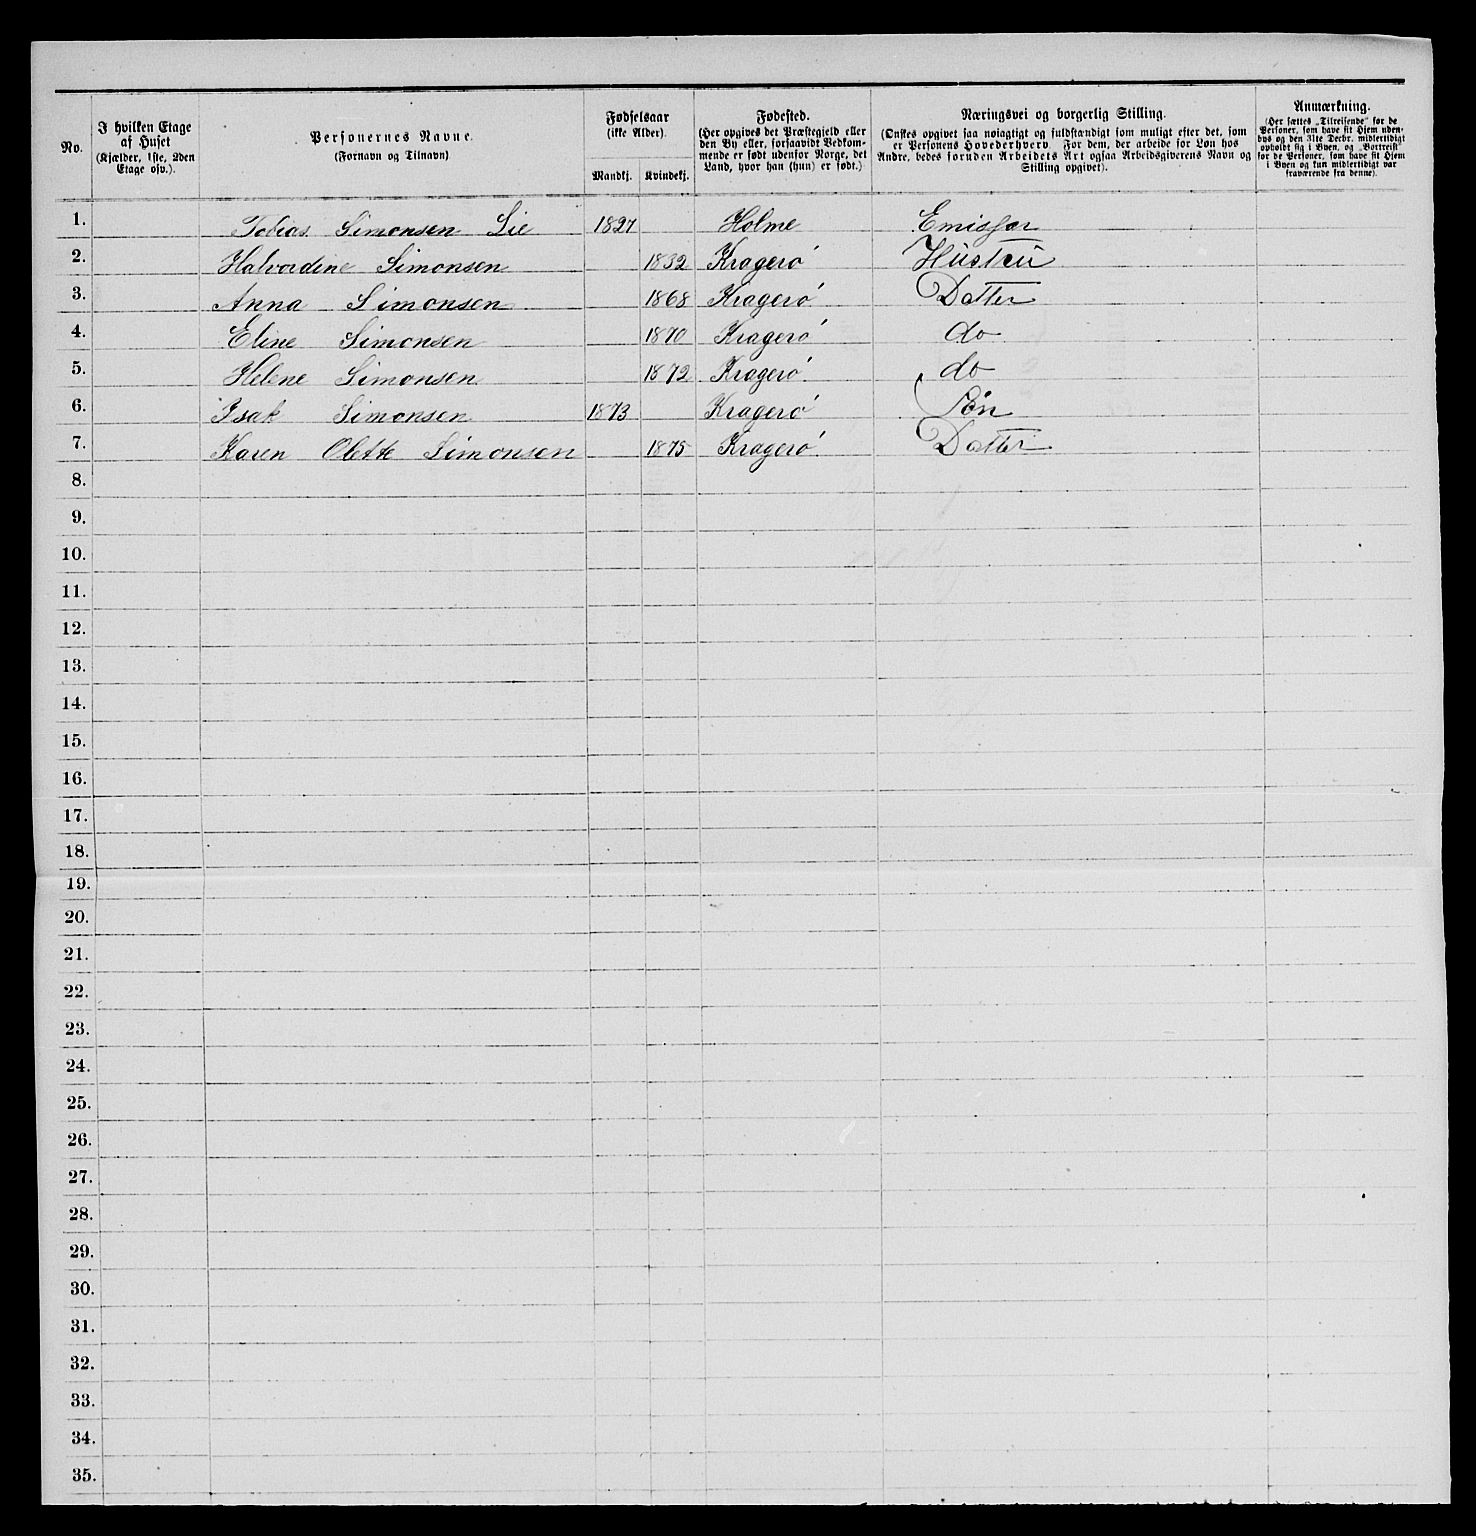 No.
I hvilken Etage
af Huset
(Kjælder, 1ste, 2den
Etage osv.).
Personernes Navne.
(Fornavn og Tilnavn)
Fødselsaar
(ikke Alder).
Mandkj. Kvindekj.
Fødested.
(Her opgives det Præstegjeld eller
den By eller, forsaavidt Vedkom-
mende er født udenfor Norge, det
Land, hvor han (hun) er født.)
Næringsvei og borgerlig Stilling.
(Ønskes opgivet saa nøiagtigt og fuldstændigt som muligt efter det, som
er Personens Hovederhverv. For dem, der arbeide for Løn hos
Andre, bedes foruden Arbeidets Art ogsaa Arbeidsgiverens Navn og
Stilling opgivet).
Anmærkning.
(Her sættes „Tilreisende" for de
Personer, som have sit Hjem uden-
bys og den 31te Decbr. midlertidigt
opholdt sig i Byen, og „Bortreist"
for de Personer, som have sit Hjem
i Byen og kun midlertidigt var
fraværende fra denne).
1. Tobias Simonsen Lie 1827 Holme Emissar
2. Halvordine Simonsen 1832 Kragerö Hustru
3. Anna Simonsen 1868 Kragerö Datter
4. Eline Simonsen 1870 Kragerö do
5. Helene Simonsen 1872 Kragerö do
6. Isak Simonsen 1873 Kragerö Sön
7. Karen Olette Simonsen 1875 Kragerö Datter
8.
9.
10.
11.
12.
13.
14.
15.
16.
17.
18.
19.
20.
21.
22.
23.
24.
25.
26.
27.
28.
29.
30.
31.
32.
33.
34.
35.